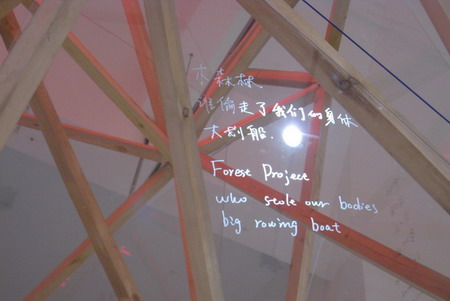 木森林
谁偷走了我们的身体
大划船.
Forest Project
who stole our bodies
big rowing boat